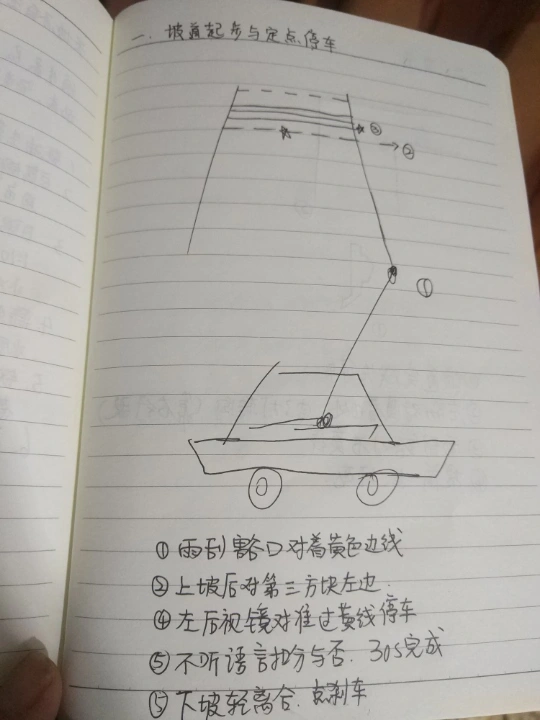 一、坡道起步与定点停车
③
②
①
① 雨刮豁口对着黄色边线
② 上坡后对第三方块左边.
④ 左后视镜对准过黄线停车
⑤ 不听语言扣分与否. 30s完成
⑤ 下坡轻离合. 点刹车